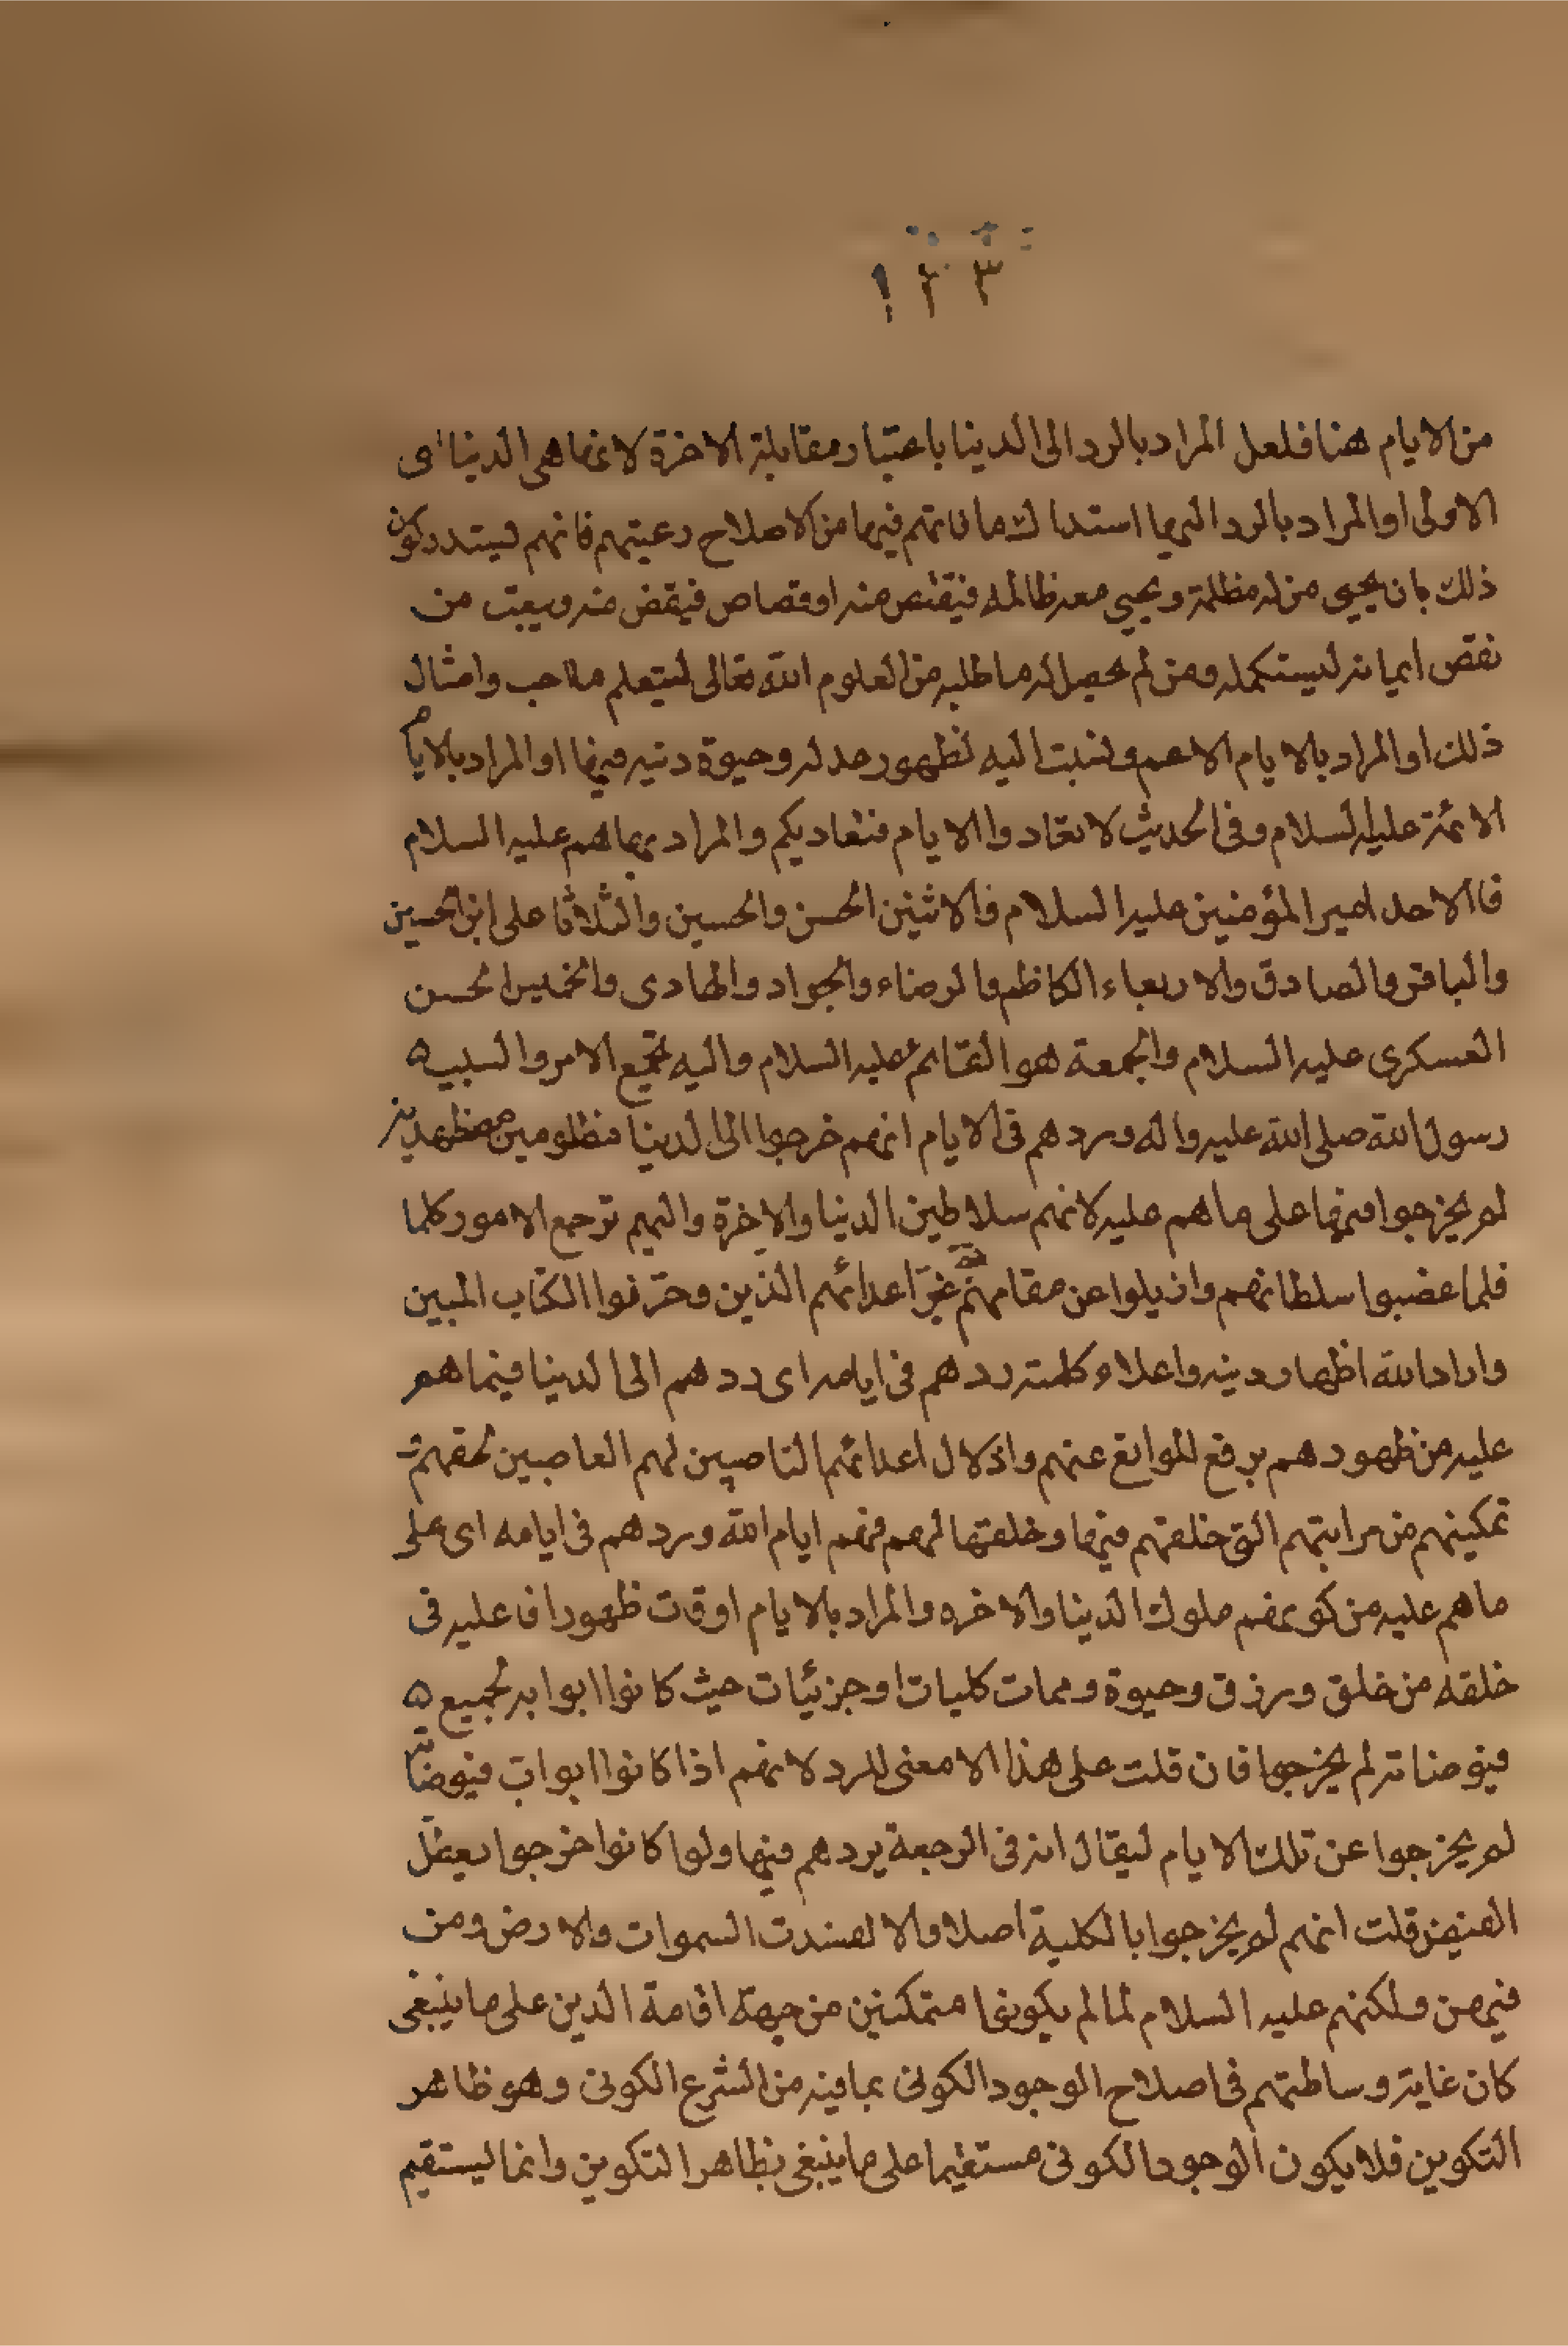 ١٢٣
من الايام هنا فلعل المراد بالرد الى الدينا باعتبار مقابلة الاخرة لانها هى الدنيا اى
الاولى او المراد بالرد اليها استدا ك ما فاتهم فيها من الاصلاح رعيتهم فانهم ليتدركون
ذلك بان يحيى من له مظلمة و يحيى معه ظالمه فيقتص منه او قصاص فيقض منه ويبعث من
نقص ايمانه ليستكمله ومن لم يحصل له ما طلبه من العلوم الله تعالى ليتعلم ما احب وامثال
ذلك او المراد بالايام الاعم ونسبت اليه لظهور عدله وحيوة دنيه فيها او المراد بالايام
الائمة عليه السلام وفى الحديث لا تعادوا الايام فتعاديكم والمراد بها هم عليه السلام
فالاحد امير المؤمنين عليه السلام والاثنين الحسن والحسين والثلاثا على ابن الحسين
والباقر والصادق والاربعاء الكاظم والرضاء والجواد والهادى والخميس الحسن
العسكرى عليه السلام والجمعة هو القائم عليه السلام واليه تجمع الامر والسبيه
رسول الله صلى الله عليه واله وردهم فى الايام انهم خرجوا الى الدينا مظلومين مضطهدين
لم يخرجوا فيها على ما هم عليه لانهم سلاطين الدنيا والاخرة واليهم ترجع الامور كلها
فلما غضبوا سلطانهم وازيلوا عن مقامهم غير اعدائهم الدين وحرفوا الكتاب المبين
واراد الله اظهار دينه واعلاء كلمته ردهم فى ايامه اى ردهم الى الدنيا فيما هم
عليه من ظهورهم برفع الموانع عنهم واذلال اعدائهم الناصبين لهم الغاصبين لحقهم
تمكينهم من مراتبهم التى خلقهم فيها وخلقها لهم فهم ايام الله وردهم فى ايامه اى على
ما هم عليه من كونهم ملوك الدينا والاخره والمراد بالايام اوقات ظهور افاعليه فى
خلقه من خلق ورزق وحيوة وممات كليات او جزئيات حيث كانوا ابوابه لجميع
فيوضاته لم يخرجوا فان قلت على هذا الا معنى للرد لانهم اذا كانوا ابواب فيوضاته
لم يخرجوا عن تلك الايام ليقال انه فى الرجعة يردهم فيها ولوا كانوا خرجوا بعطل
الفيض قلت انهم لم يخرجوا بالكلية اصلا والا لفسدت السموات والارض ومن
فيهن ولكنهم عليه السلام لما لم يكونوا متمكنين من جهة اقامة الدين على ما ينبغى
كان غاية وساطتهم فى اصلاح الوجود الكونى بما فيه من الشرع الكونى وهو ظاهر
التكوين فلا يكون الوجود الكونى مستقيما على ما ينبغى بظاهر التكوين وانما ليستقيم